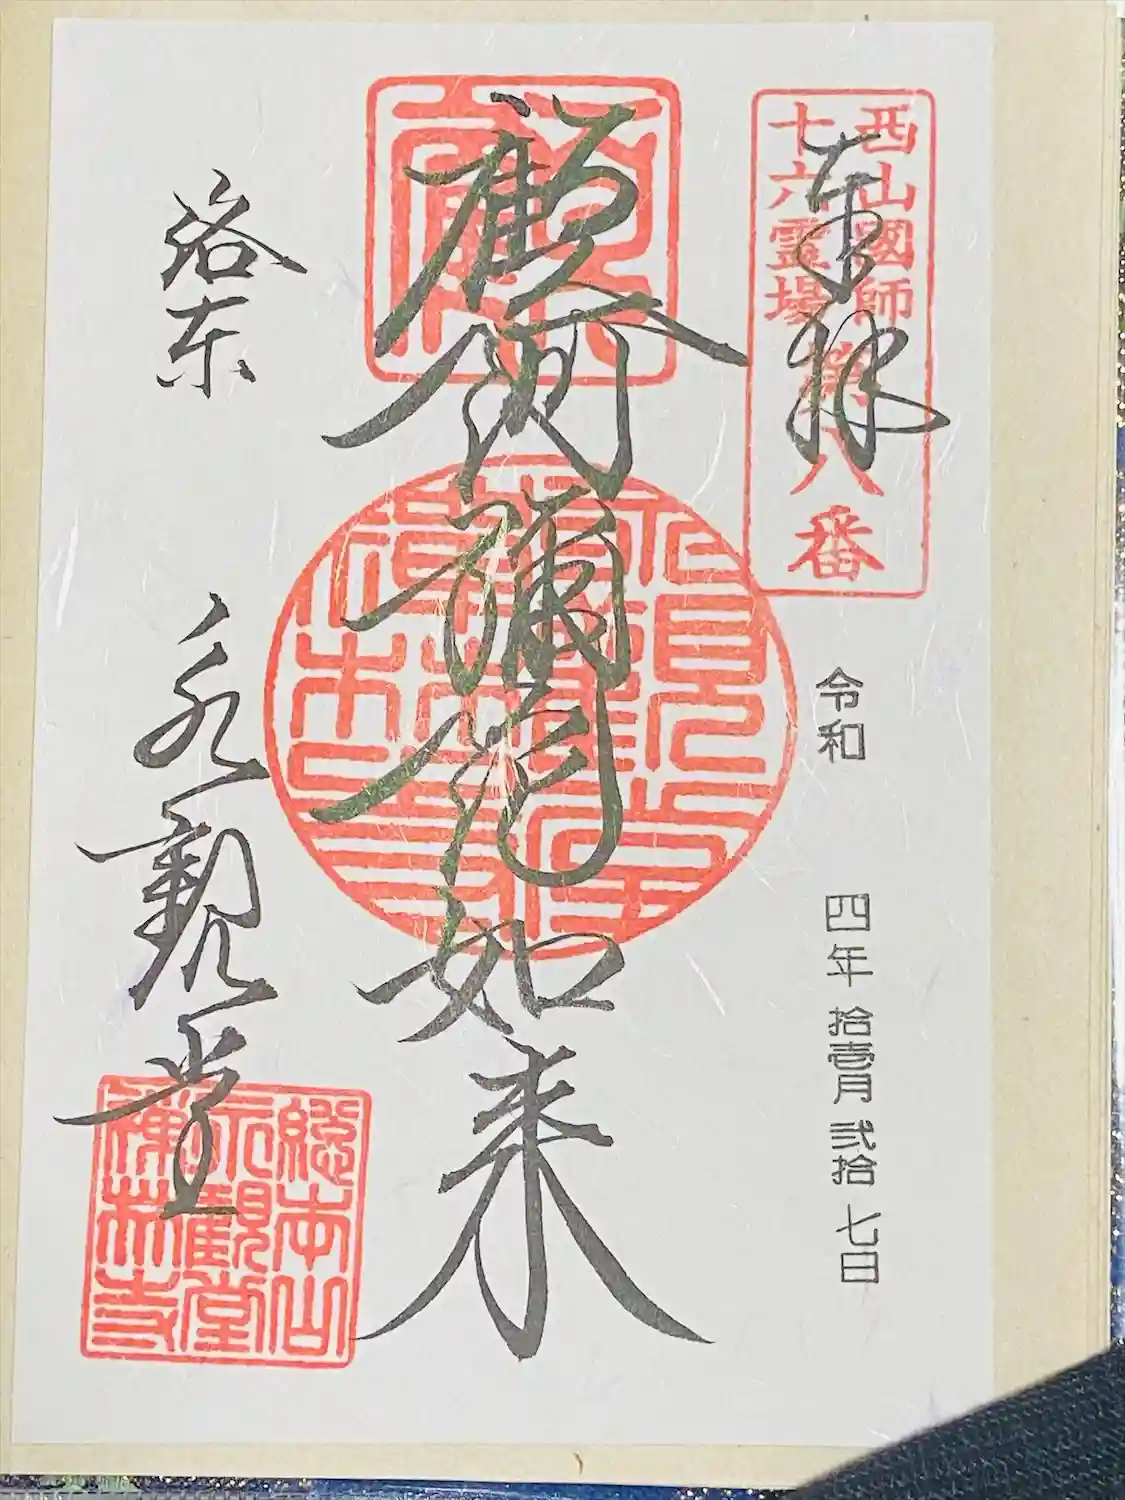 奉拝
西山國師
十六霊場
第八番
令和四年拾壱月弐拾七日
顧阿彌陀如来
洛東
永観堂
総本山
永觀堂
禅林寺